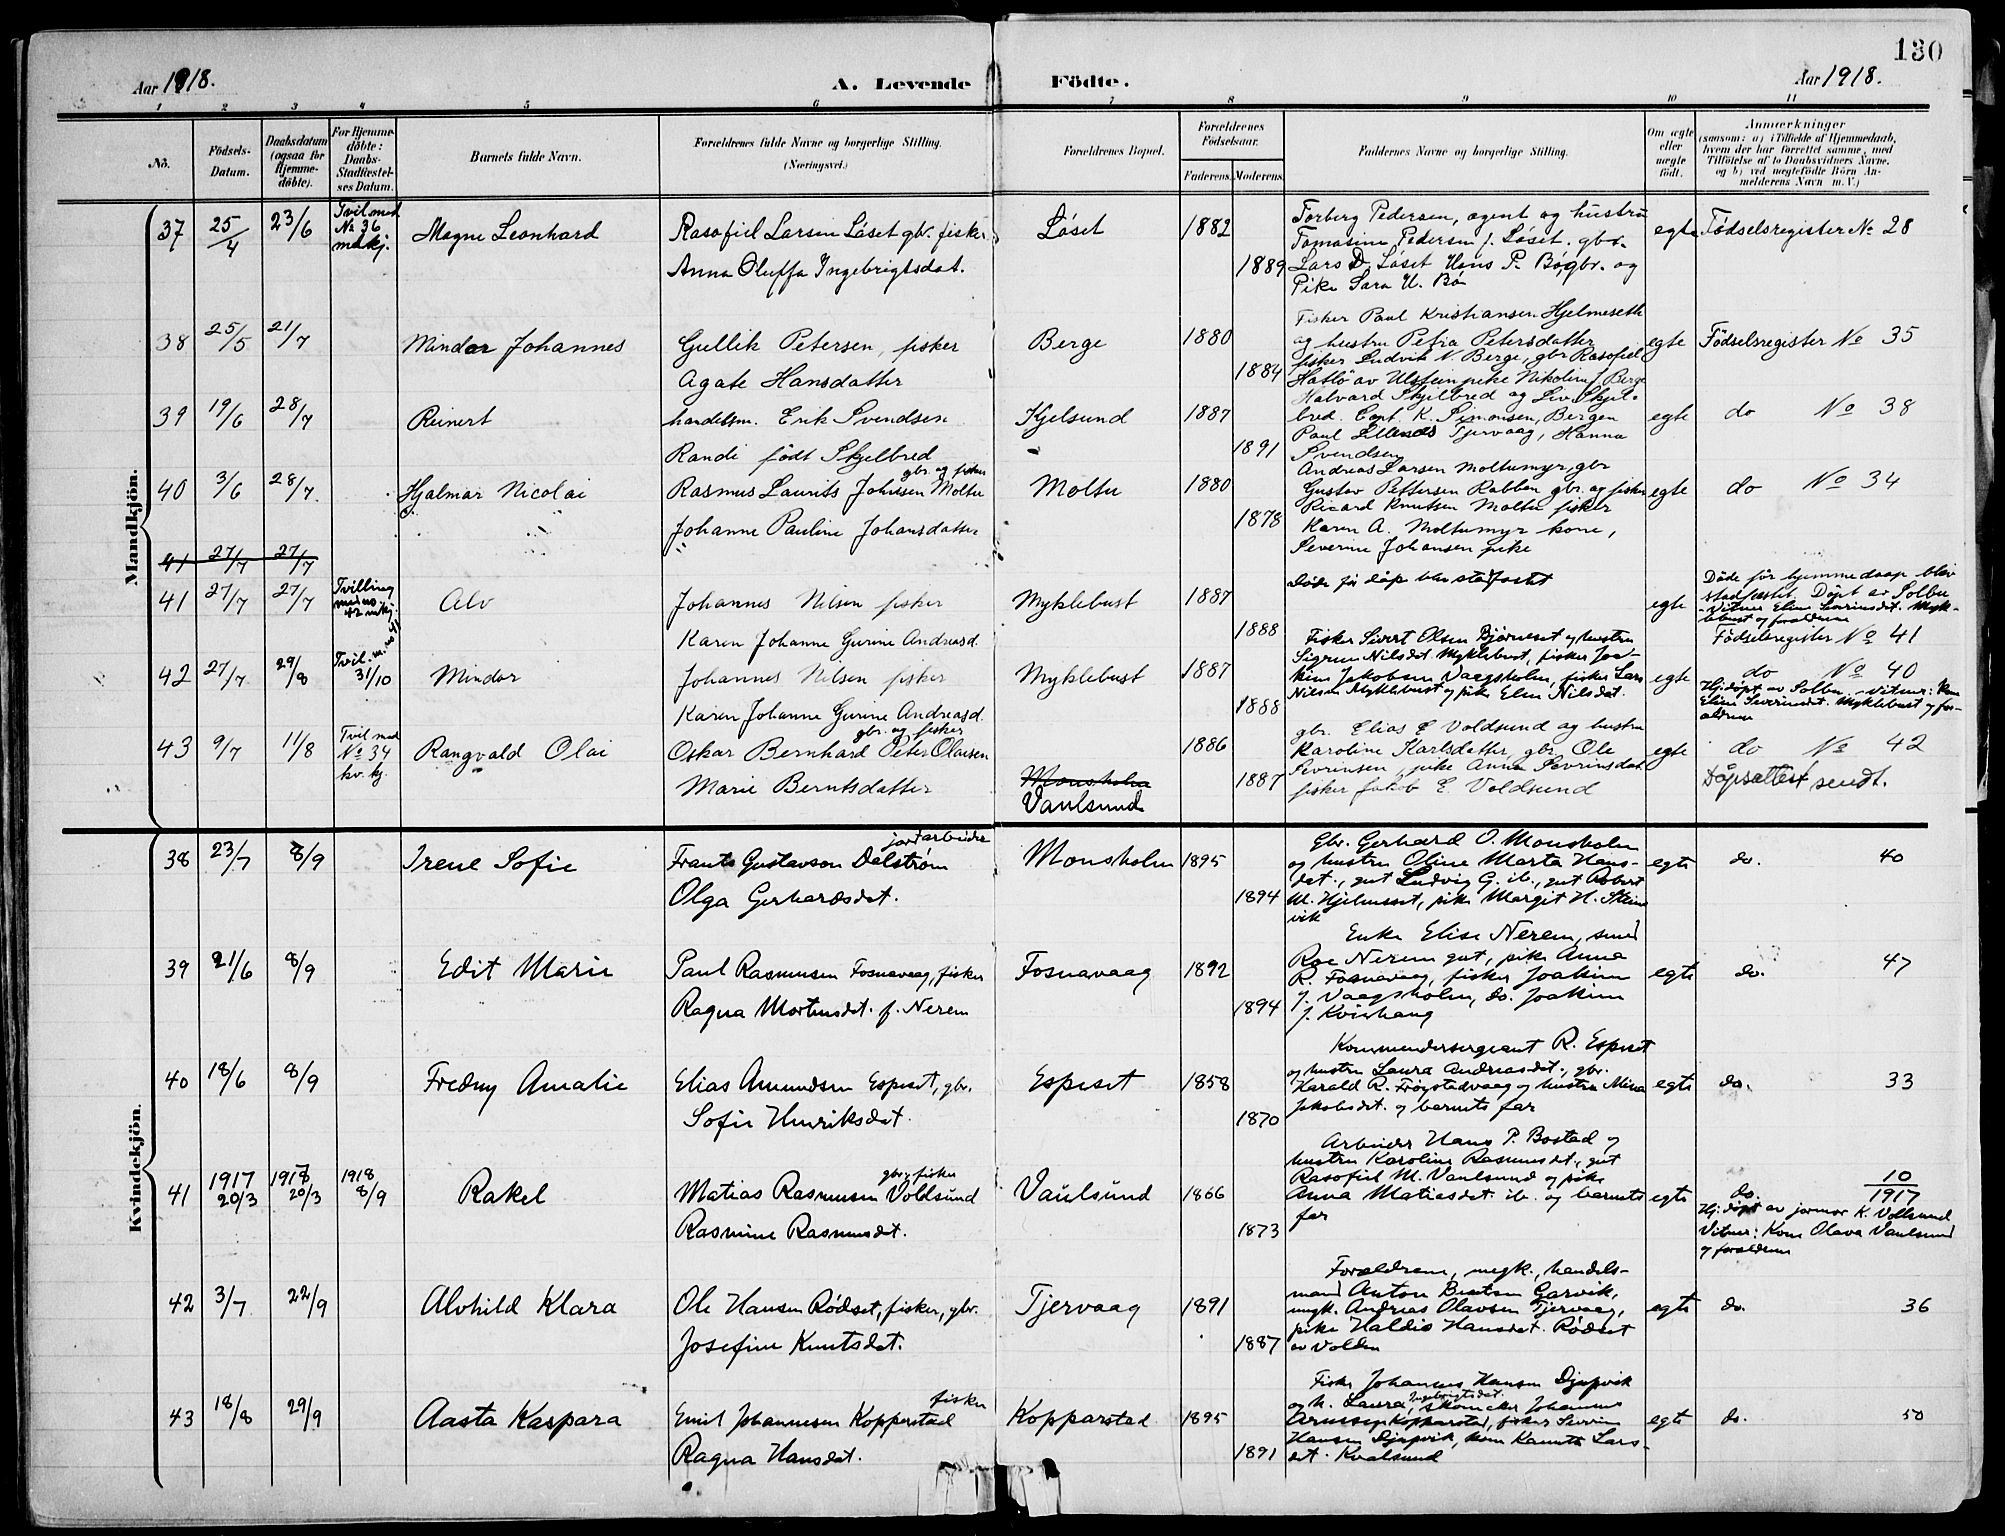 130
Aar 1918.
A. Levende Födte.
Aar 1918.
1 2 3 4 5 6 7 8 9 10 11
No.
Födsels-Datum.
Daabsdatum (ogsaa for Hjemme-döbte).
For Hjemme-döbte: Daabs-Stadfæstel-ses Datum.
Barnets fulde Navn.
Forældrenes fulde Navne og borgerlige Stilling. (Næringsvei.)
Forældrenes Bopæl.
Forældrenes Födselsaar.
Faderens. Moderens.
Faddernes Navne og borgerlige Stilling.
Om ægte eller uægte født.
Anmærkninger
(saasom: a) i Tilfælde af Hjemmedaab,
hvem der har forrettet samme, med
Tilföielse af to Daabsvidners Navne,
og b) ved uægtefödte Börn An-
melderens Navn m. V.)
Mandkjön.
37 25/4 23/6 Tvil med No 36 mdkj. Magne Leonhard
Rasofiel Larsen Løset gbr. fisker
Anna Oluffa Ingebrigtsdat.
Løset 1882 1889
Torberg Pedersen, agent og hustru
Tomasine Pedersen f. Løset, gbr.
Lars D. Løset Hans P. Bø gbr. og
Pike Sara H. Bø
egte Fødselsregister No 28
38 25/5 21/7 Mindor Johannes
Gullik Petersen, fisker
Agate Hansdatter
Berge 1880 1884
Fisker Paul Kristiansen Hjelmeseth
og hustru Petra Petersdatter
fisker Ludvik N. Berge, gbr Rasofiel
Hatlø av Ulstein pike Nikoline J Berge
egte Fødselsregister No 35
39 19/6 28/7 Reinert
handelsm. Erik Svendsen
Randi født Skjelbred
Kjelsund 1887 1891
Halvard Skjelbred og Liv Skjel-
bred. Capt. K. Simonsen, Bergen
Paul Tjervaag, Hanna
Svendsen
egte do No 38
40 3/6 28/7. Hjalmar Nicolai
gbr. og fisker
Rasmus Laurits Johnsen Moltu
Johanne Pauline Johansdatter
Moltu 1880 1878
Andreas Larsen Moltumyr, gbr
Gustav Pettersen Rabben gbr. og fisker
Ricard Knutsen Moltu fisker
Karen A. Moltumyr kone,
Severine Johansen pike
egte do No 34
41 27/7 27/7
41 27/7 27/7 Tvilling med no 42 mkj. Alv
Johannes Nilsen fisker
Karen Johanne Gurine Andreasd.
Myklebust 1887 1888
Døde før dåp blev stadfæstet
egte
Døde før hjemmedaap blev
stadfæstet. Døpt av Solbu
- Vitner Eline Severinsdet. Myk-
lebust og forældrene
Fødselsregister No 41
42 27/7 29/8 Tvil. m. no 41 31/10 Mindor
Johannes Nilsen fisker
Karen Johanne Gurine Andreasd.
Myklebust 1887 1888
Fisker Sivert Olsen Bjørneset og hustru
Sigrun Nilsdet Myklebust, fisker Joa-
kim Jakobsen Vaagsholm, fisker Lars
Nilsen Myklebust og pike Elen Nilsdet.
egte do No 40
Hj. døpt av Solbu. - Vitner: Kone
Eline Severinsdet. Myklebust og for-
ældrene
43 9/7 11/8 Tvil med No 34 kv. kj. Rangvald Olai
gbr. og fisker
Oskar Bernhard Peter Olausen
Marie Berntsdatter
Monsholm
Vaulsund
1886 1887
gbr. Elias E Voldsund og hustru
Karoline Karlsdatter, gbr. Ole
Sevrinsen, pike Anna Sevrinsdat.
fisker Jakob E. Voldsund
egte do No 42
Dåpsattest sendt.
Kvindekjön.
38 23/7 8/9 Irene Sofie
jordarbeider
Frants Gustavson Dalstrøm
Olga Gerhardsdet.
Monsholm 1895 1894
Gbr. Gerhard O. Monsholm
og hustru Oline Marta Hans-
det., gut Ludvig G. ib., gut Robert
M. Hjelmeset, pike Margit H. Stein-
vik
egte do. 40
39 21/6 8/9 Edit Marie
Paul Rasmussen Fosnavaag, fisker
Ragna Mortensdet. f. Nerem
Fosnavaag 1892 1894
Enke Elise Nerem, smed
Roe Nerem gut, pike Anna
R. Fosnavaag, fisker Joakim
J. Vaagsholm, do. Joakim
J. Kvishaug
egte do. 47
40 18/6 8/9 Fredny Amalie
Elias Amundsen Espeset, gbr.
Sofie Henriksdet.
Espeset 1858 1870
Kommendersergeant R. Espeset
og hustru Laura Andreasdet., gbr.
Harald R. Frøystadvaag og hustru Mina
Jakobsdet. og barnets far
egte do. 33
41 1917 20/3 1917 20/3 1918 8/9 Rakel
gbr. og fisker
Matias Rasmussen Voldsund
Rasmine Rasmusdet.
Vaulsund 1866 1873
Arbeider Hans P. Bostad og
hustru Karoline Rasmusdet., gut
Rasofiel M. Vaulsund og pike
Anna Matiasdet. ib. og barnets
far
egte do. 10/1917
Hj. døpt av jormor K. Voldsund
Vitner: Kone Olava Vaulsund
og forældrene
42 3/7 22/9 Alvhild Klara
Ole Hansen Rødset, fisker, gbr.
Josefine Knutsdet.
Tjervaag 1891 1887
Forældrene, ungk., handels-
mand Anton Bentsen Garvik,
ungk. Andreas Olavsen Tjervaag,
pike Haldis Hansdet. Rødset
av Volden
egte do. 36
43 18/8 29/9 Aasta Kaspara
fisker
Emil Johannesen Kopperstad
Ragna Hansdet.
Kopparstad 1895 1891
Fisker Johannes Hansen Djupvik
og h. Laura Ingebrigtsdet., skomaker Johannes
Kopparstad, fisker Severin
Hansen Djupvik, kone Lars-
det. Kvalsund
egte do. 50